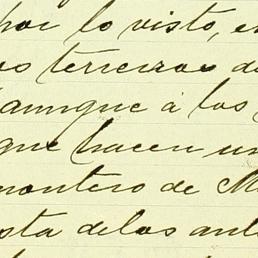 por lo visto, e
os terceros d
aunque á los
que hacen un
montero de M
sta delos ant